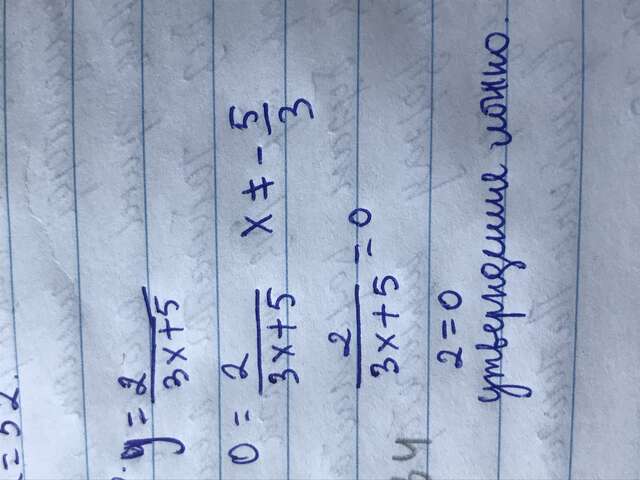 =32.
y = 2/(3x+5)
0 = 2/(3x+5) x ≠ -5/3
2/(3x+5) = 0
2=0
утверждение ложно.